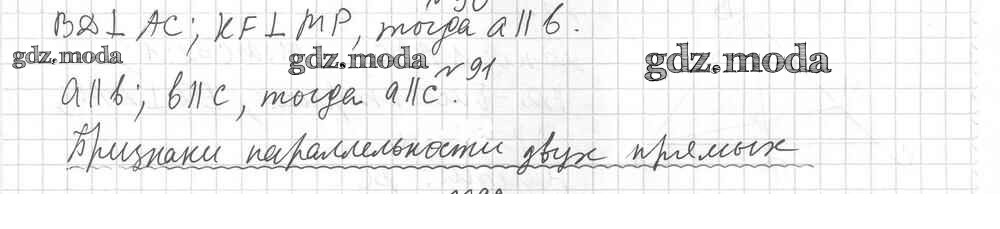 BD⊥AC; KF⊥MP, тогда a∥b.
gdz.moda gdz.moda gdz.moda
№91
a∥b; b∥c, тогда a∥c.
Признаки параллельности двух прямых